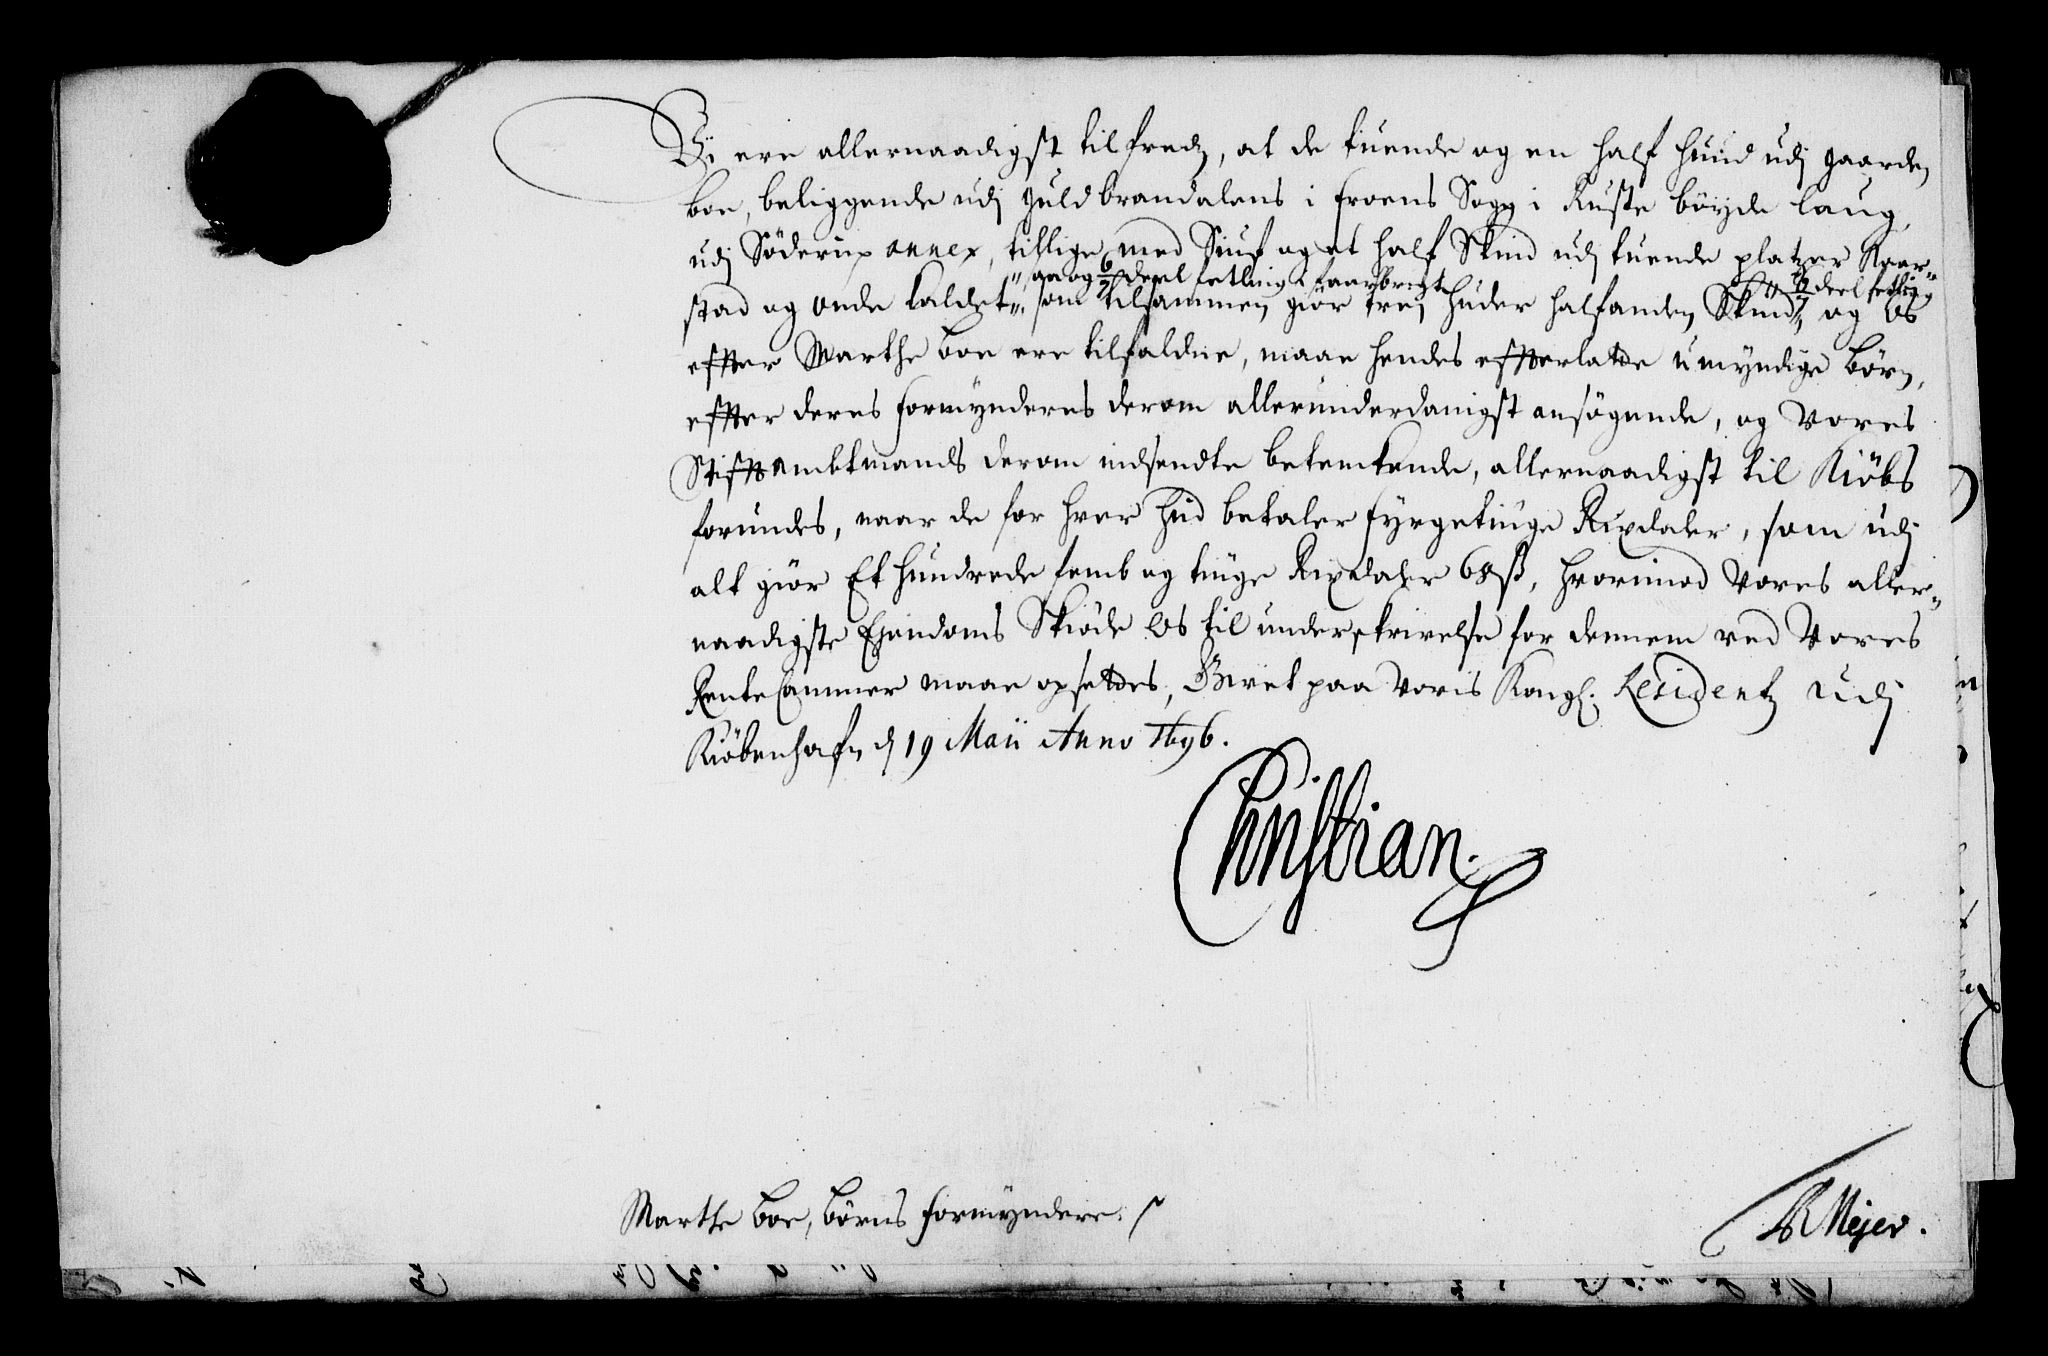 Vi ere allernaadigst tilfreds, at de tuende og en half huud udj gaarden
boe, beliggende udj Guldbrandalens i froens Sogn i Ruste böyde laug
udj Söderup annex, tillige med Siuf og et half Skind udj tuende platzer Kaar-
gar og 6/7 deel fetling i faarbrigte
6/7 deel fetling
stad og onde kaldet som tilsammen giör trej huder halfanden Skind, og os
effter Marthe boe ere tilfaldne, maae hendes effterlatte umyndige börn,
effter deres formynderes derom allerunderdanigst ansögende, og Vores
Stifftamktmands derom indsendte betenkende, allernaadigst til Kiöbs
forundes, naar de for hver Hud betaler fyrgetiuge Rixdaler, som udj
alt giör Et hundrede femb og tiuge Rixdaler 68 ß, hvorimod Vores aller-
naadigste Ejendoms Skiöde os til underskrivelse for dennem ved Vores
RenteCammer maae opsettes, Givet paa Voris Kongl. Residentz udj
Kiöbenhafn d 19 Maii Anno 1696.
Christian.
Marthe boe, börns formyndere.
Meyer.